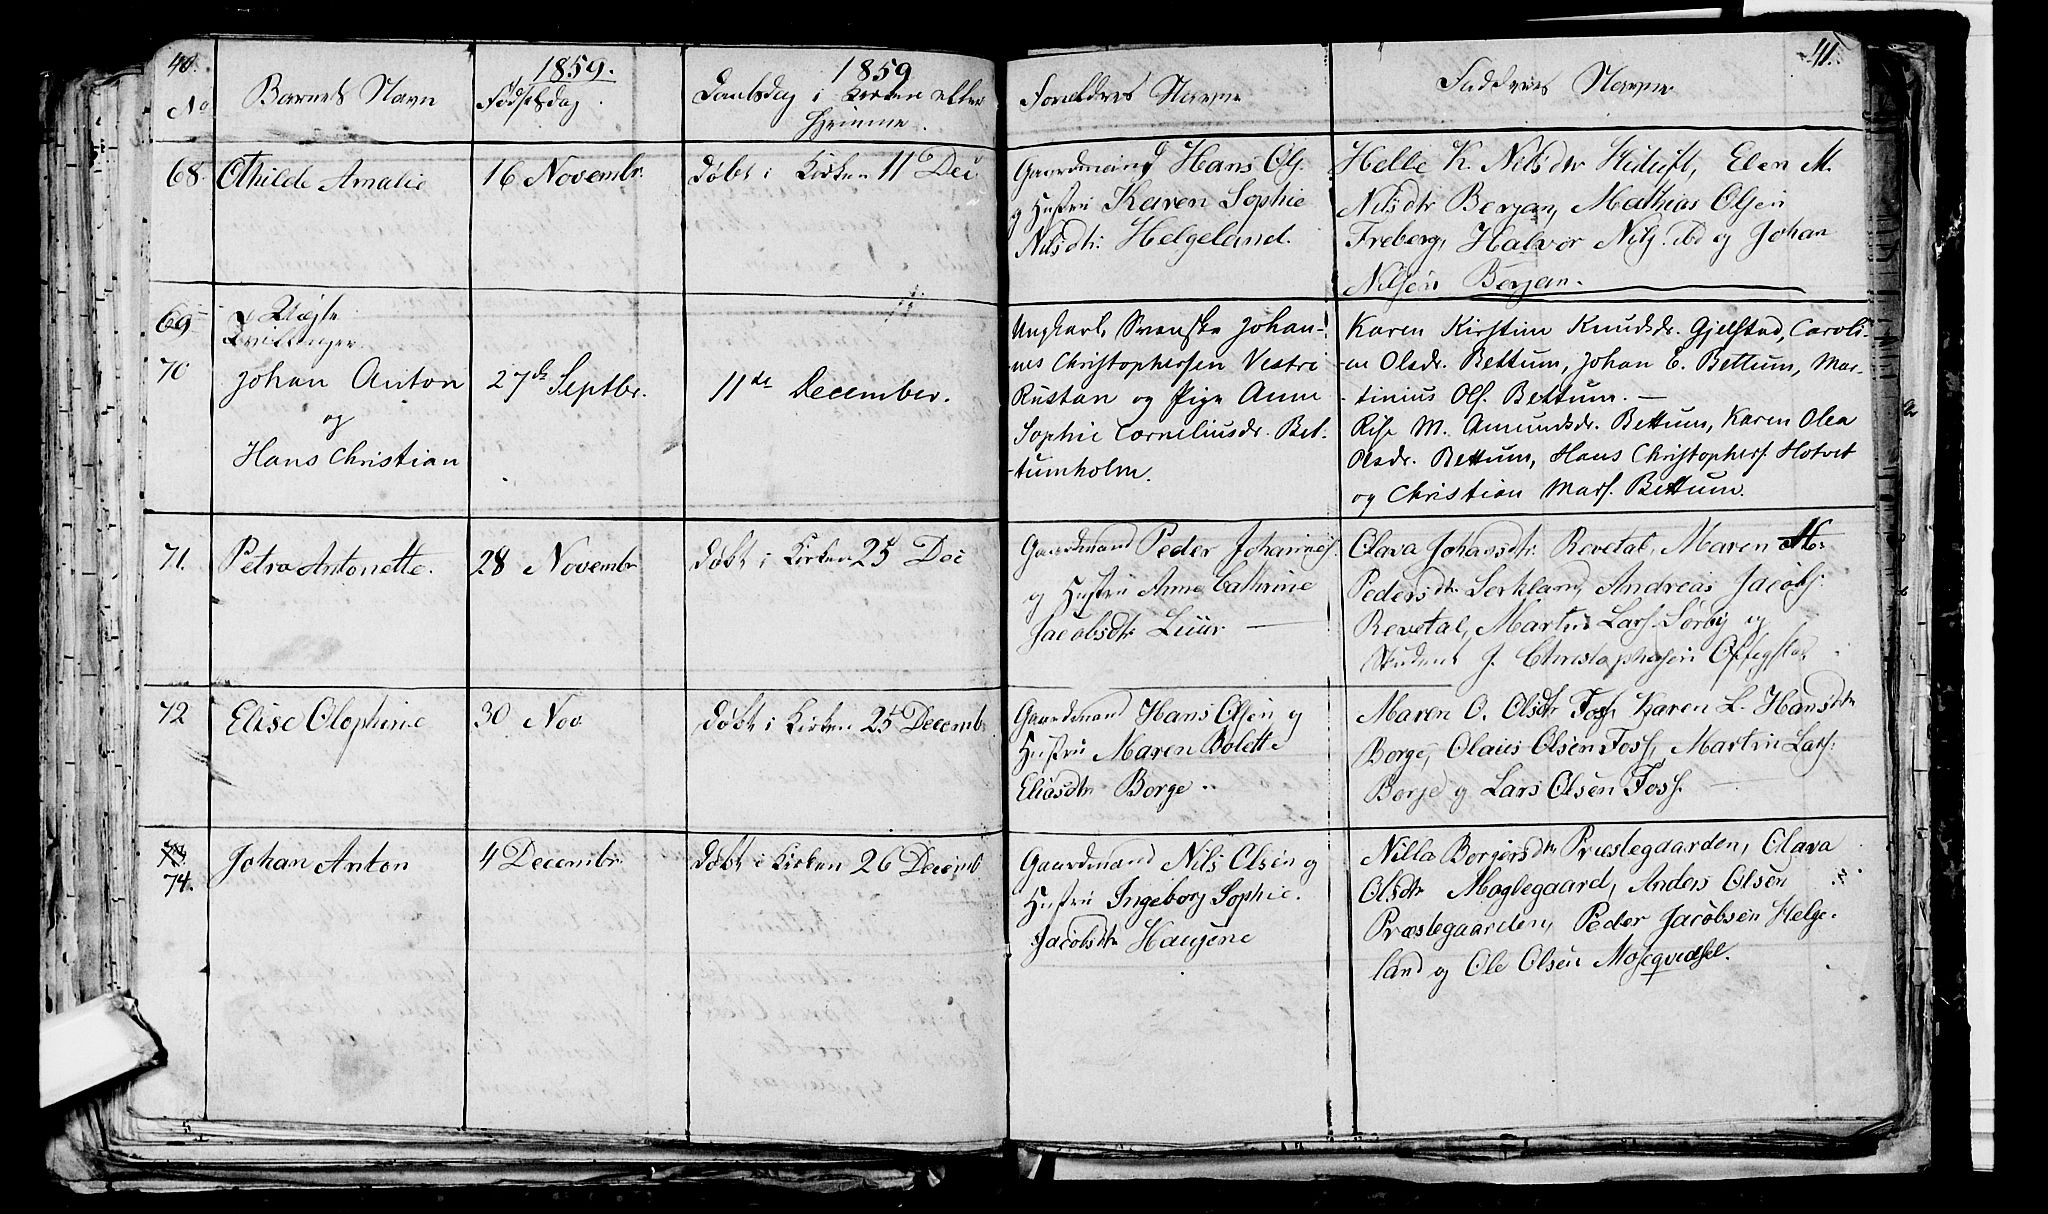 40.
No
Barnets Navn
1859.
Fødselsdag
1859
Daabsdag i Kirken eller
Hjemme.
68.
Othilde Amalie
16 Novembr.
døbt i Kirken 11 Dec
69
70
2 Uægte
Tvillinger
Johan Anton
og
Hans Christian
27de Septbr.
11te December.
71.
Petra Antonette.
28 Novembr
døbt i Kirken 25 Dec
72
Elise Olophine
30 Nov
døbt i Kirken 25 Decemb
73.
74.
Johan Anton
4 Decembr.
døbt i Kirken 26 Decemb
41.
Forældres Navne
Faddernes Navne
Gaardmand Hans Ols.
og Hustru Karen Sophie
Nilsdtr. Helgeland.
Helle K. Nilsdtr Elen M.
Nilsdtr Berjan, Mathias Olsen
Freberg, Halvor Nils. ibd og Johan
Nilsen Berjan.
Ungkarl, Svenske Johan-
nes Christophersen Vestre
Rustan og Pige Anne
Sophie Corneliusdr. Bet-
-tumholm.
Karen Kirstine Knudsdr. Gjelstad, Caroli-
-ne Olsdr. Bettum, Johan E. Bettum, Mar-
-tinius Ols. Bettum. —
Rise M. Amundsdr. Bettum, Karen Olea
Olsdr. Bettum, Hans Christophers. Hotvet
og Christian Mars. Bettum.
Gaardmand Peder Johannes.
og Hustru Anne Cathrine
Jacobsdtr Luur —
Olava Johansdtr. Revetal, Maren
Pedersdtr Serkland, Andreas Jacobs.
Revetal, Martin Lars. Sørby og
Student J. Christophersen
Gaardmand Hans Olsen og
Hustru Maren Bolette
Eliasdtr Borge
Maren O. Olsdtr Foss, Karen L. Hansdtr
Borge, Olaus Olsen Foss, Martin Lars.
Borge og Lars Olsen Foss. —
Gaardmand Nils Olsen og
Hustru Ingeborg Sophie.
Jacobsdtr Haugene
Nilla Borgersdtr Præstegaarden, Olava
Olsdtr Møglegaard, Anders Olsen
Præstegaarden, Peder Jacobsen Helge-
land og Ole Olsen